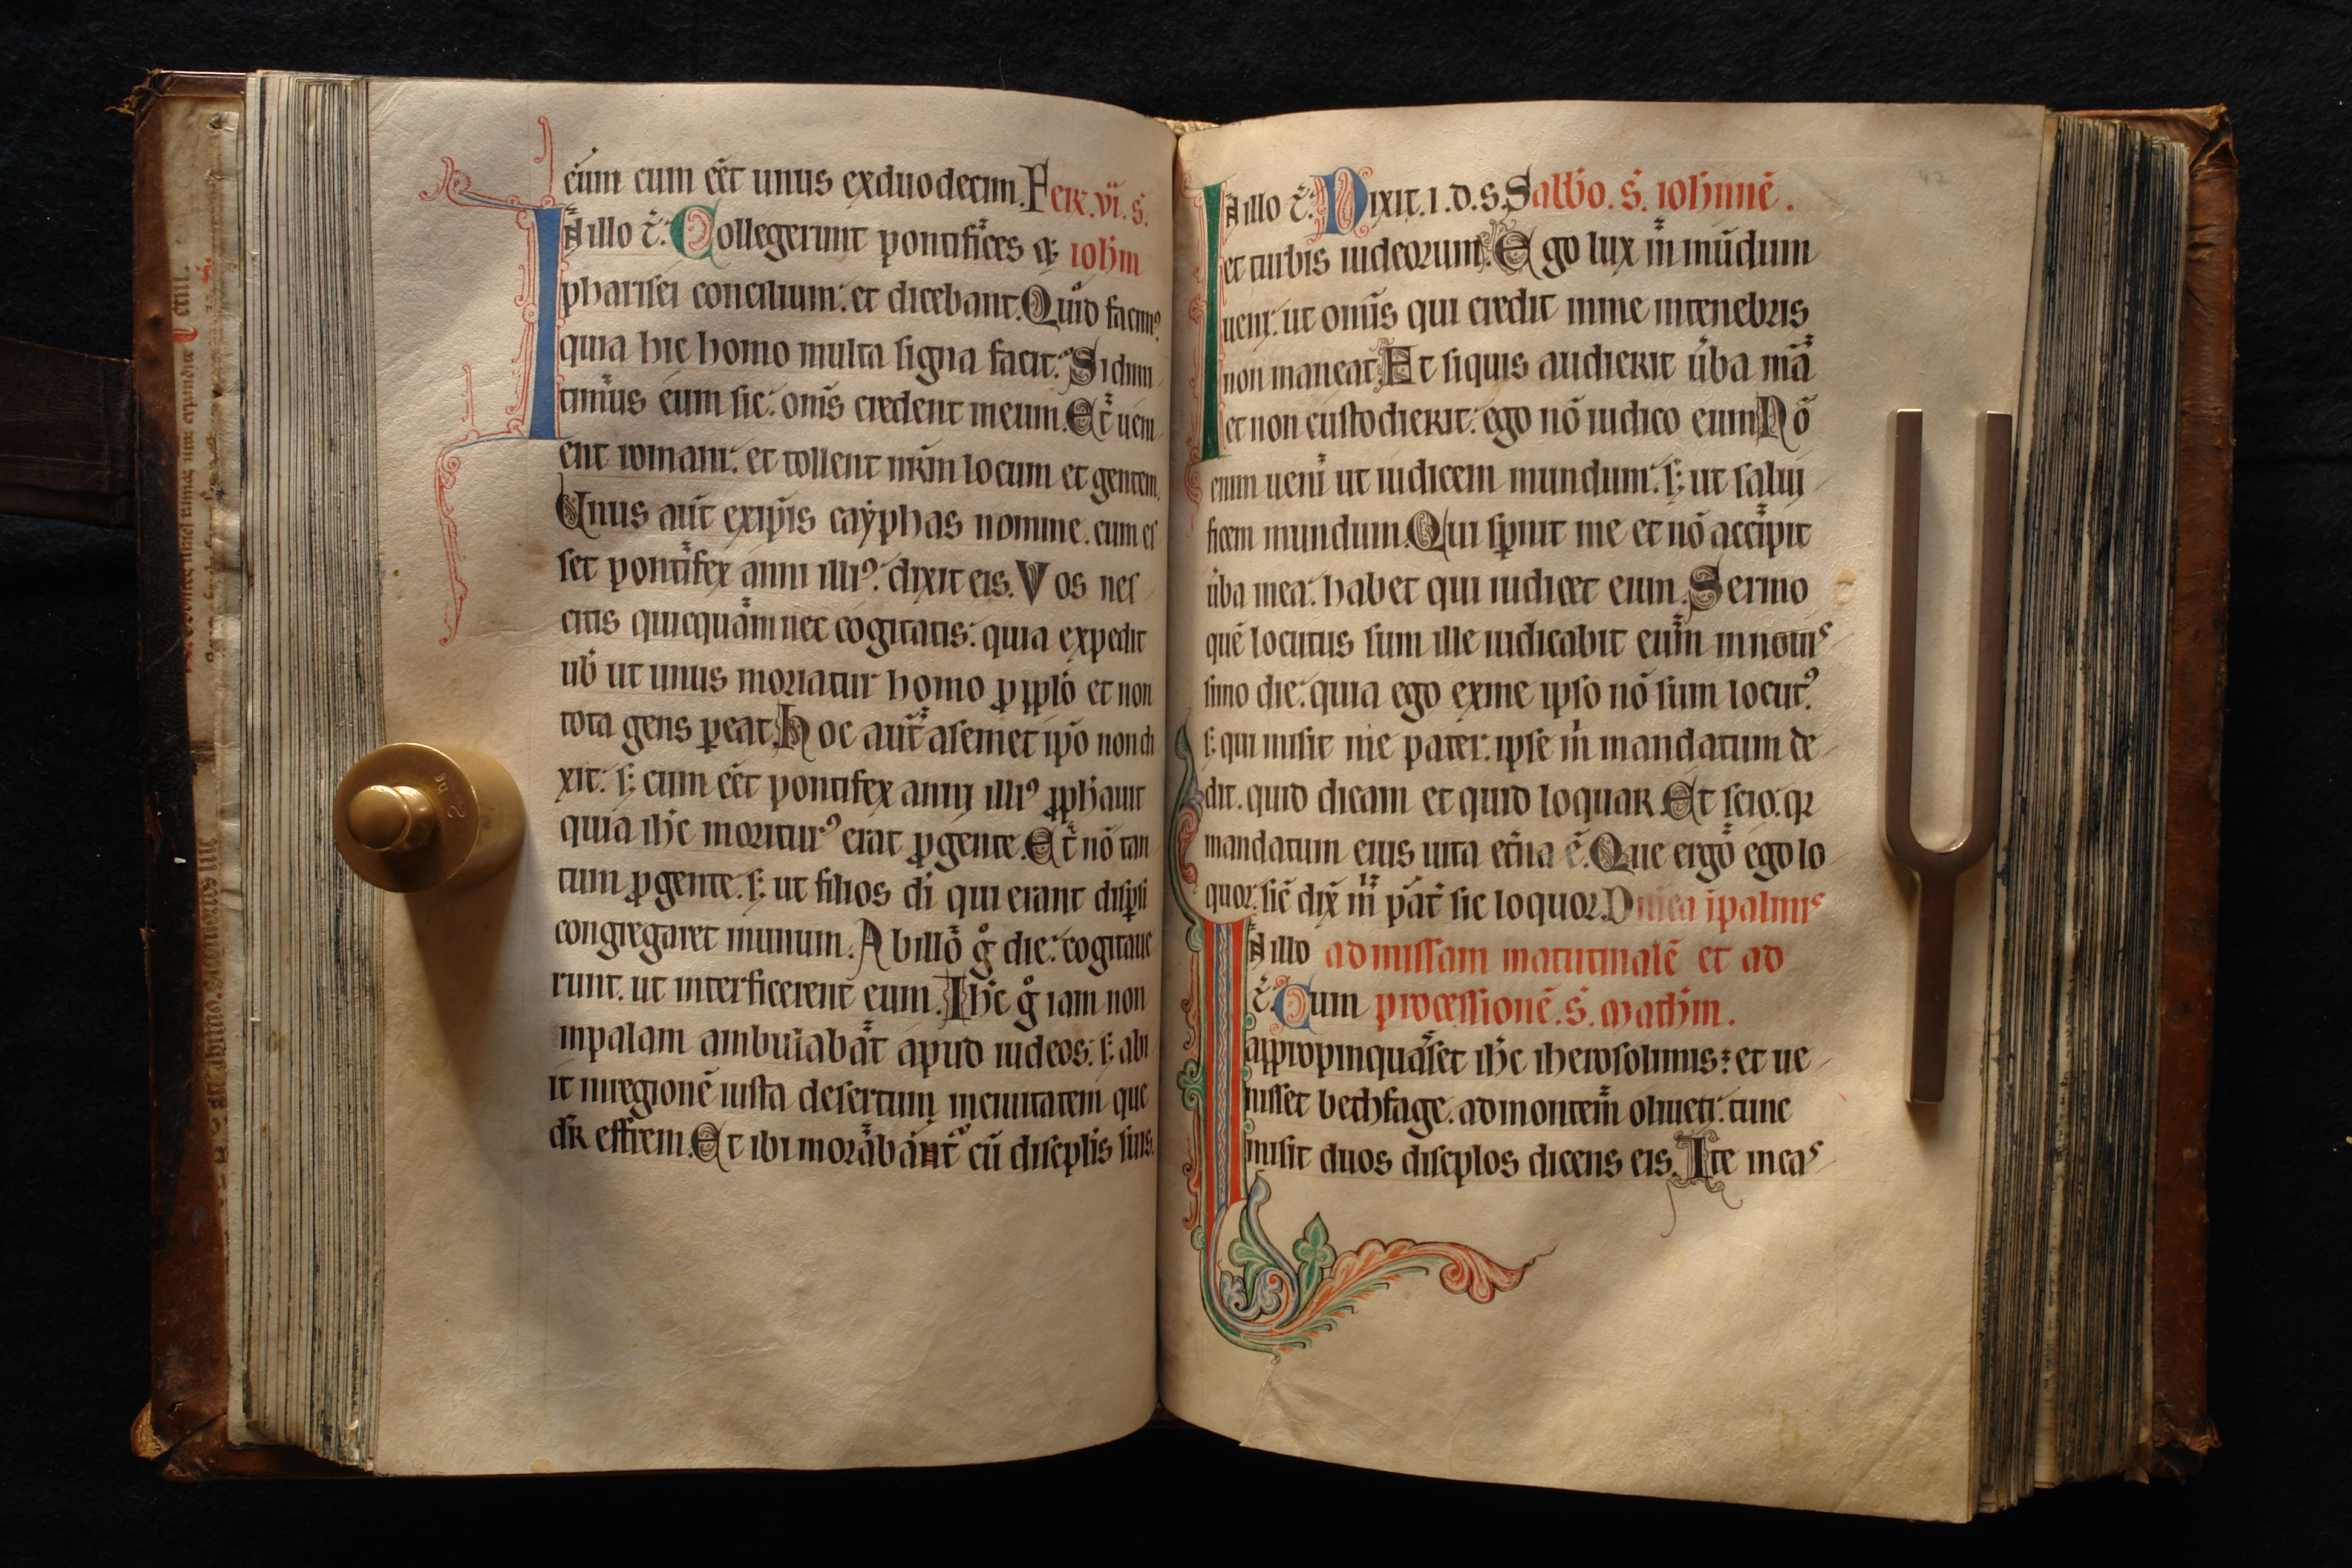 eum cum eēt unus exduodecim. Feir. vi. s̄.
In illo t̄. Collegerunt pontifices ꝫ ioh̄m
pharisei concilium: et dicebant. Quid facim⁹
quia hic homo multa signa facit: Si dimi
timus eum sic: om̄s credent ineum. Et ueni
ent romani: et tollent nr̄m locum et gentem.
Unus aut̄ exip̄is cayphas nomine. cum eſ
ſet pontifex anni illi⁹: dixit eis. Vos neſ
citis quicquam nec cogitatis: quia expedit
uob̄ ut unus moriatur homo ꝓ pp̄lo et non
tota gens ꝑeat. Hoc aut̄ aſemet ip̄o non di
xit: ſ; cum eēt pontifex anni illi⁹ ꝓph̄auit
quia ih̄c moritur⁹ erat ꝓgente. Et nō tan
tum ꝓgente. ſ; ut filios dī qui erant diſꝑſi
congregaret inunum. Abillo g̊ die: cogitaue
runt. ut interficerent eum. Ih̄c g̊ iam non
inpalam ambulabat apud iudeos: ſ; abi
it inregionē iuſta deſertum inciuitatem que
dr̄ effrem. Et ibi morabat̄ cū diſcpl̄is ſuis.
In illo t̄. Dixit. i. d. s. Sabb̄o. s̄. iohannē.
et turbis iudeorum. Ego lux in mūdum
ueni: ut om̄is qui credit inme intenebris
non maneat. Et ſiquis audierit ūba mā
et non cuſtodierit: ego nō iudico eum. Nō
enim ueni ut iudicem mundum: ſ; ut ſalui
ficem mundum. Qui ſꝑnit me et nō accipit
ūba mea: habet qui iudicet eum. Sermo
quē locutus ſum ille iudicabit eum innouiſ
ſimo die: quia ego exme ipſo nō ſum locut⁹
ſ; qui miſit me pater: ipſe m̄ mandatum de
dit. quid dicam et quid loquar. Et ſcio. qꝛ
mandatum eius uita et̄na ē. Que ergo ego lo
quor: ſic̄ dix̄ m̄ pat̄ ſic loquor. Dnica ipalmis
In illo ad miſſam matutinalē et ad
t̄. Cum proceſſionē. s̄. math̄m.
appropinquaſſet ih̄c iheroſolimis: et ue
niſſet bethfage. admontem oliueti: tunc
miſit duos diſcpl̄os dicens eis. Ite incaſ